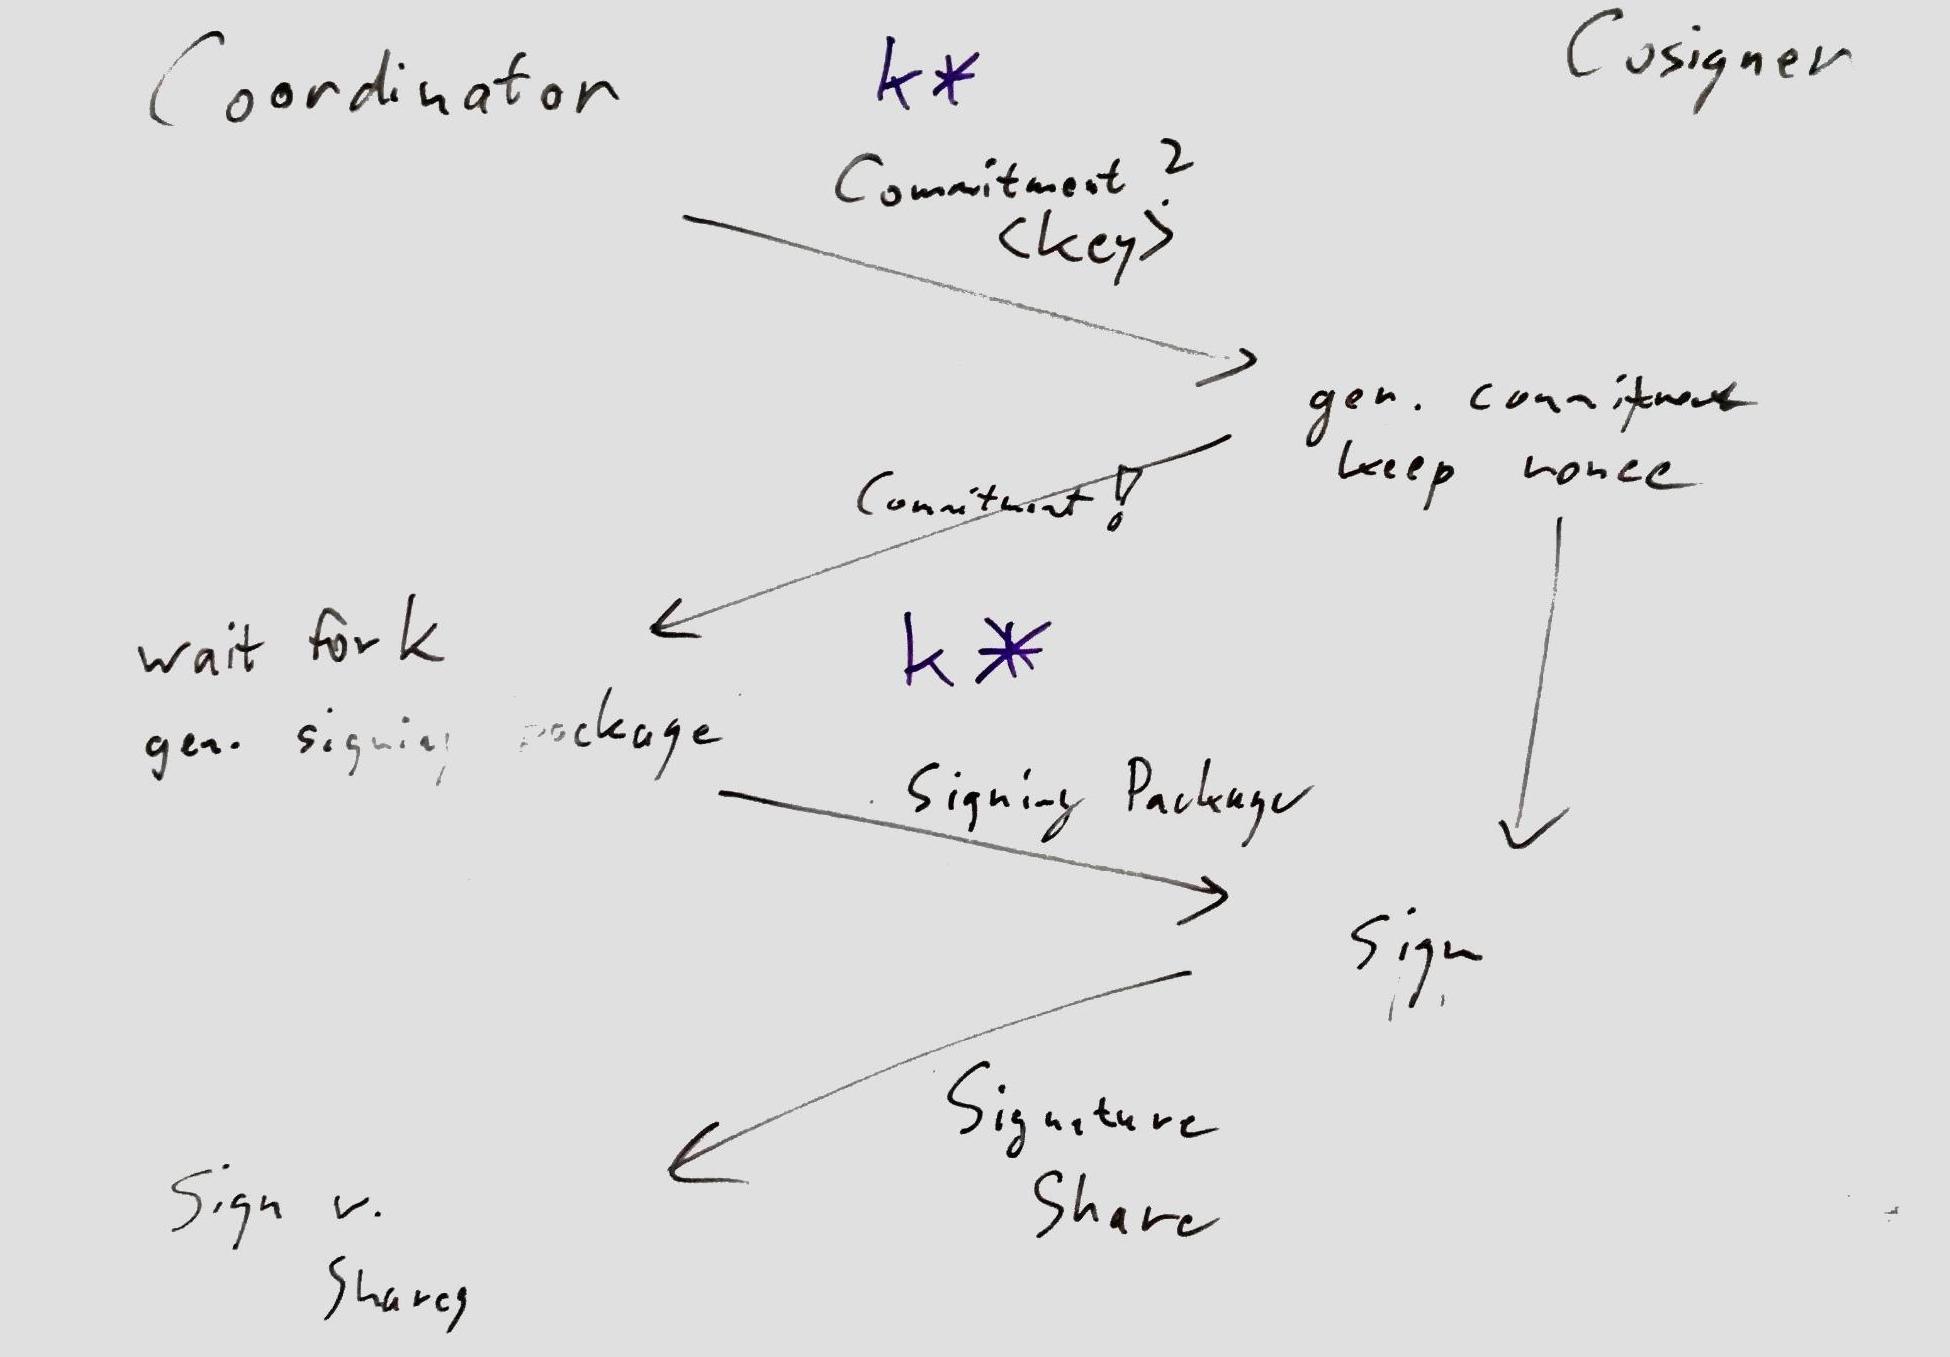 Coordinator
k*
Cosigner
Commitment?
<key>
gen. commitment
keep nonce
Commitment!
wait for k
k*
gen. signing package
Signing Package
Sign
Signature
Share
Sign v.
Shares